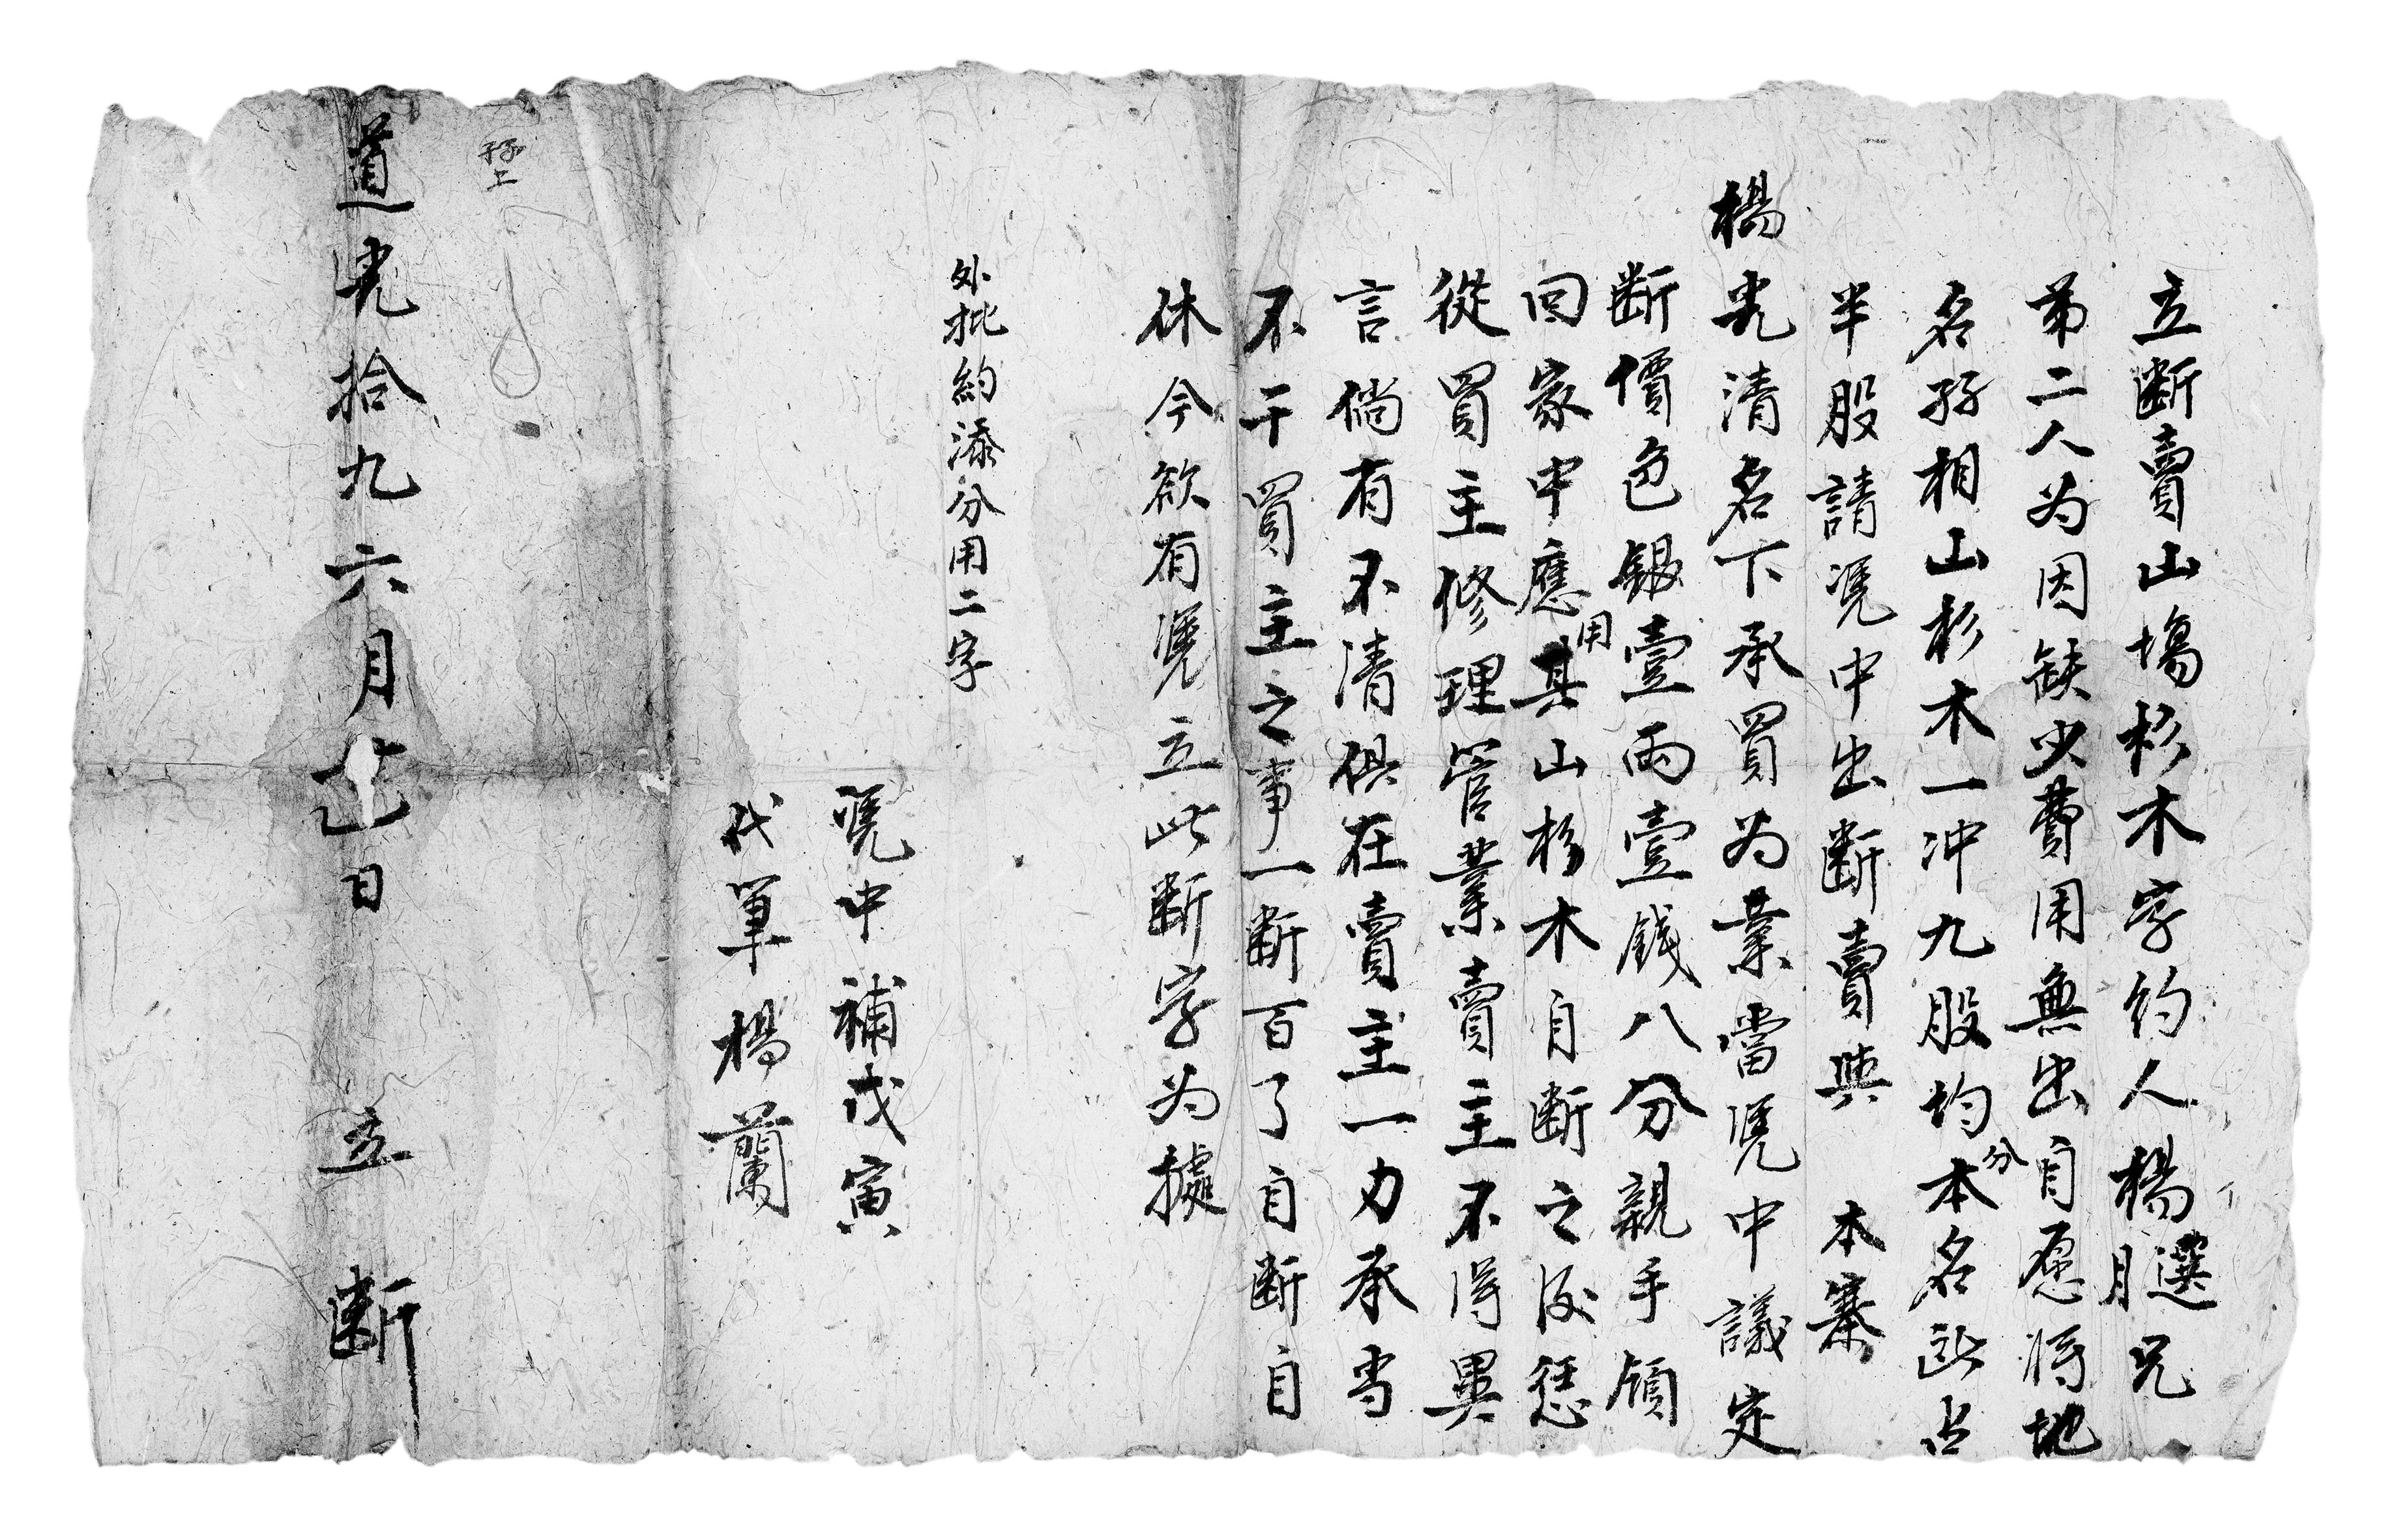 立斷賣山塲杉木字約人楊選月兄
弟二人为因缺少費用無出自愿将地
名孖相山杉木一冲九股均分本名訨占
半股請凴中出斷賣與 本寨
楊光清名下承買为業當凴中議定
斷價色銀壹两壹錢八分親手領
回家中應用其山杉木自斷之後恁
從買主修理管業賣主不得異
言倘有不清俱在賣主一力承当
不干買主之事一斷百了自斷自
休今欲有凴立此斷字为據
外批約添分用二字
凴中補戊寅
代筆楊蘭
道光拾九六月 日 立 斷